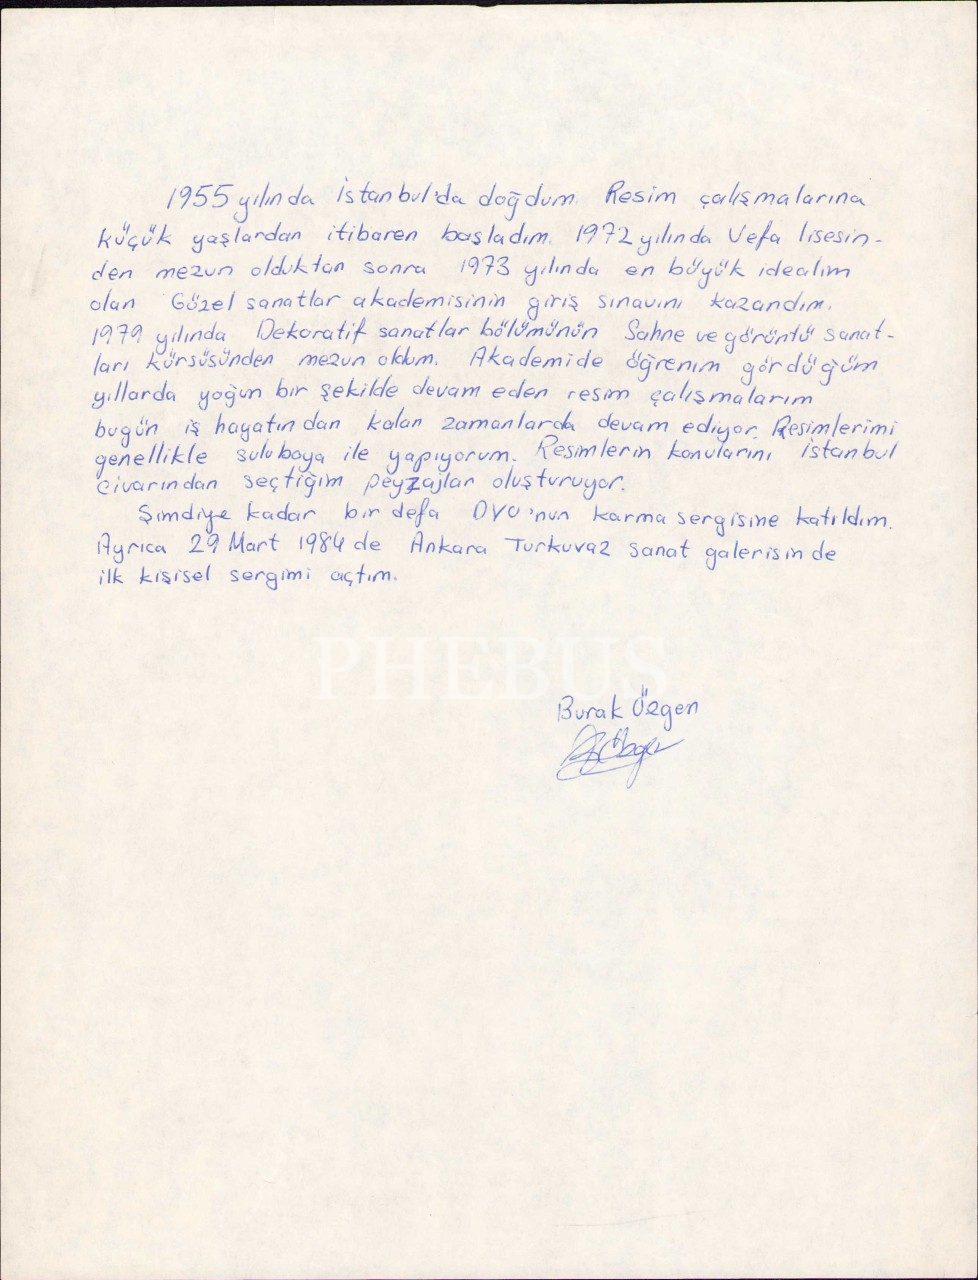 1955 yılında İstanbul'da doğdum. Resim çalışmalarına
küçük yaşlardan itibaren başladım. 1972 yılında Vefa lisesin-
den mezun olduktan sonra 1973 yılında en büyük idealim
olan Güzel sanatlar akademisinin giriş sınavını kazandım.
1979 yılında Dekoratif sanatlar bölümünün Sahne ve görüntü sanat-
ları kürsüsünden mezun oldum. Akademide öğrenim gördüğüm
yıllarda yoğun bir şekilde devam eden resim çalışmalarım
bugün iş hayatından kalan zamanlarda devam ediyor. Resimlerimi
genellikle suluboya ile yapıyorum. Resimlerin konularını İstanbul
civarından seçtiğim peyzajlar oluşturuyor.
Şimdiye kadar bir defa DYO'nun karma sergisine katıldım.
Ayrıca 29 Mart 1984 de Ankara Turkuvaz sanat galerisinde
ilk kişisel sergimi açtım.
PHEBUS
Burak Özgen